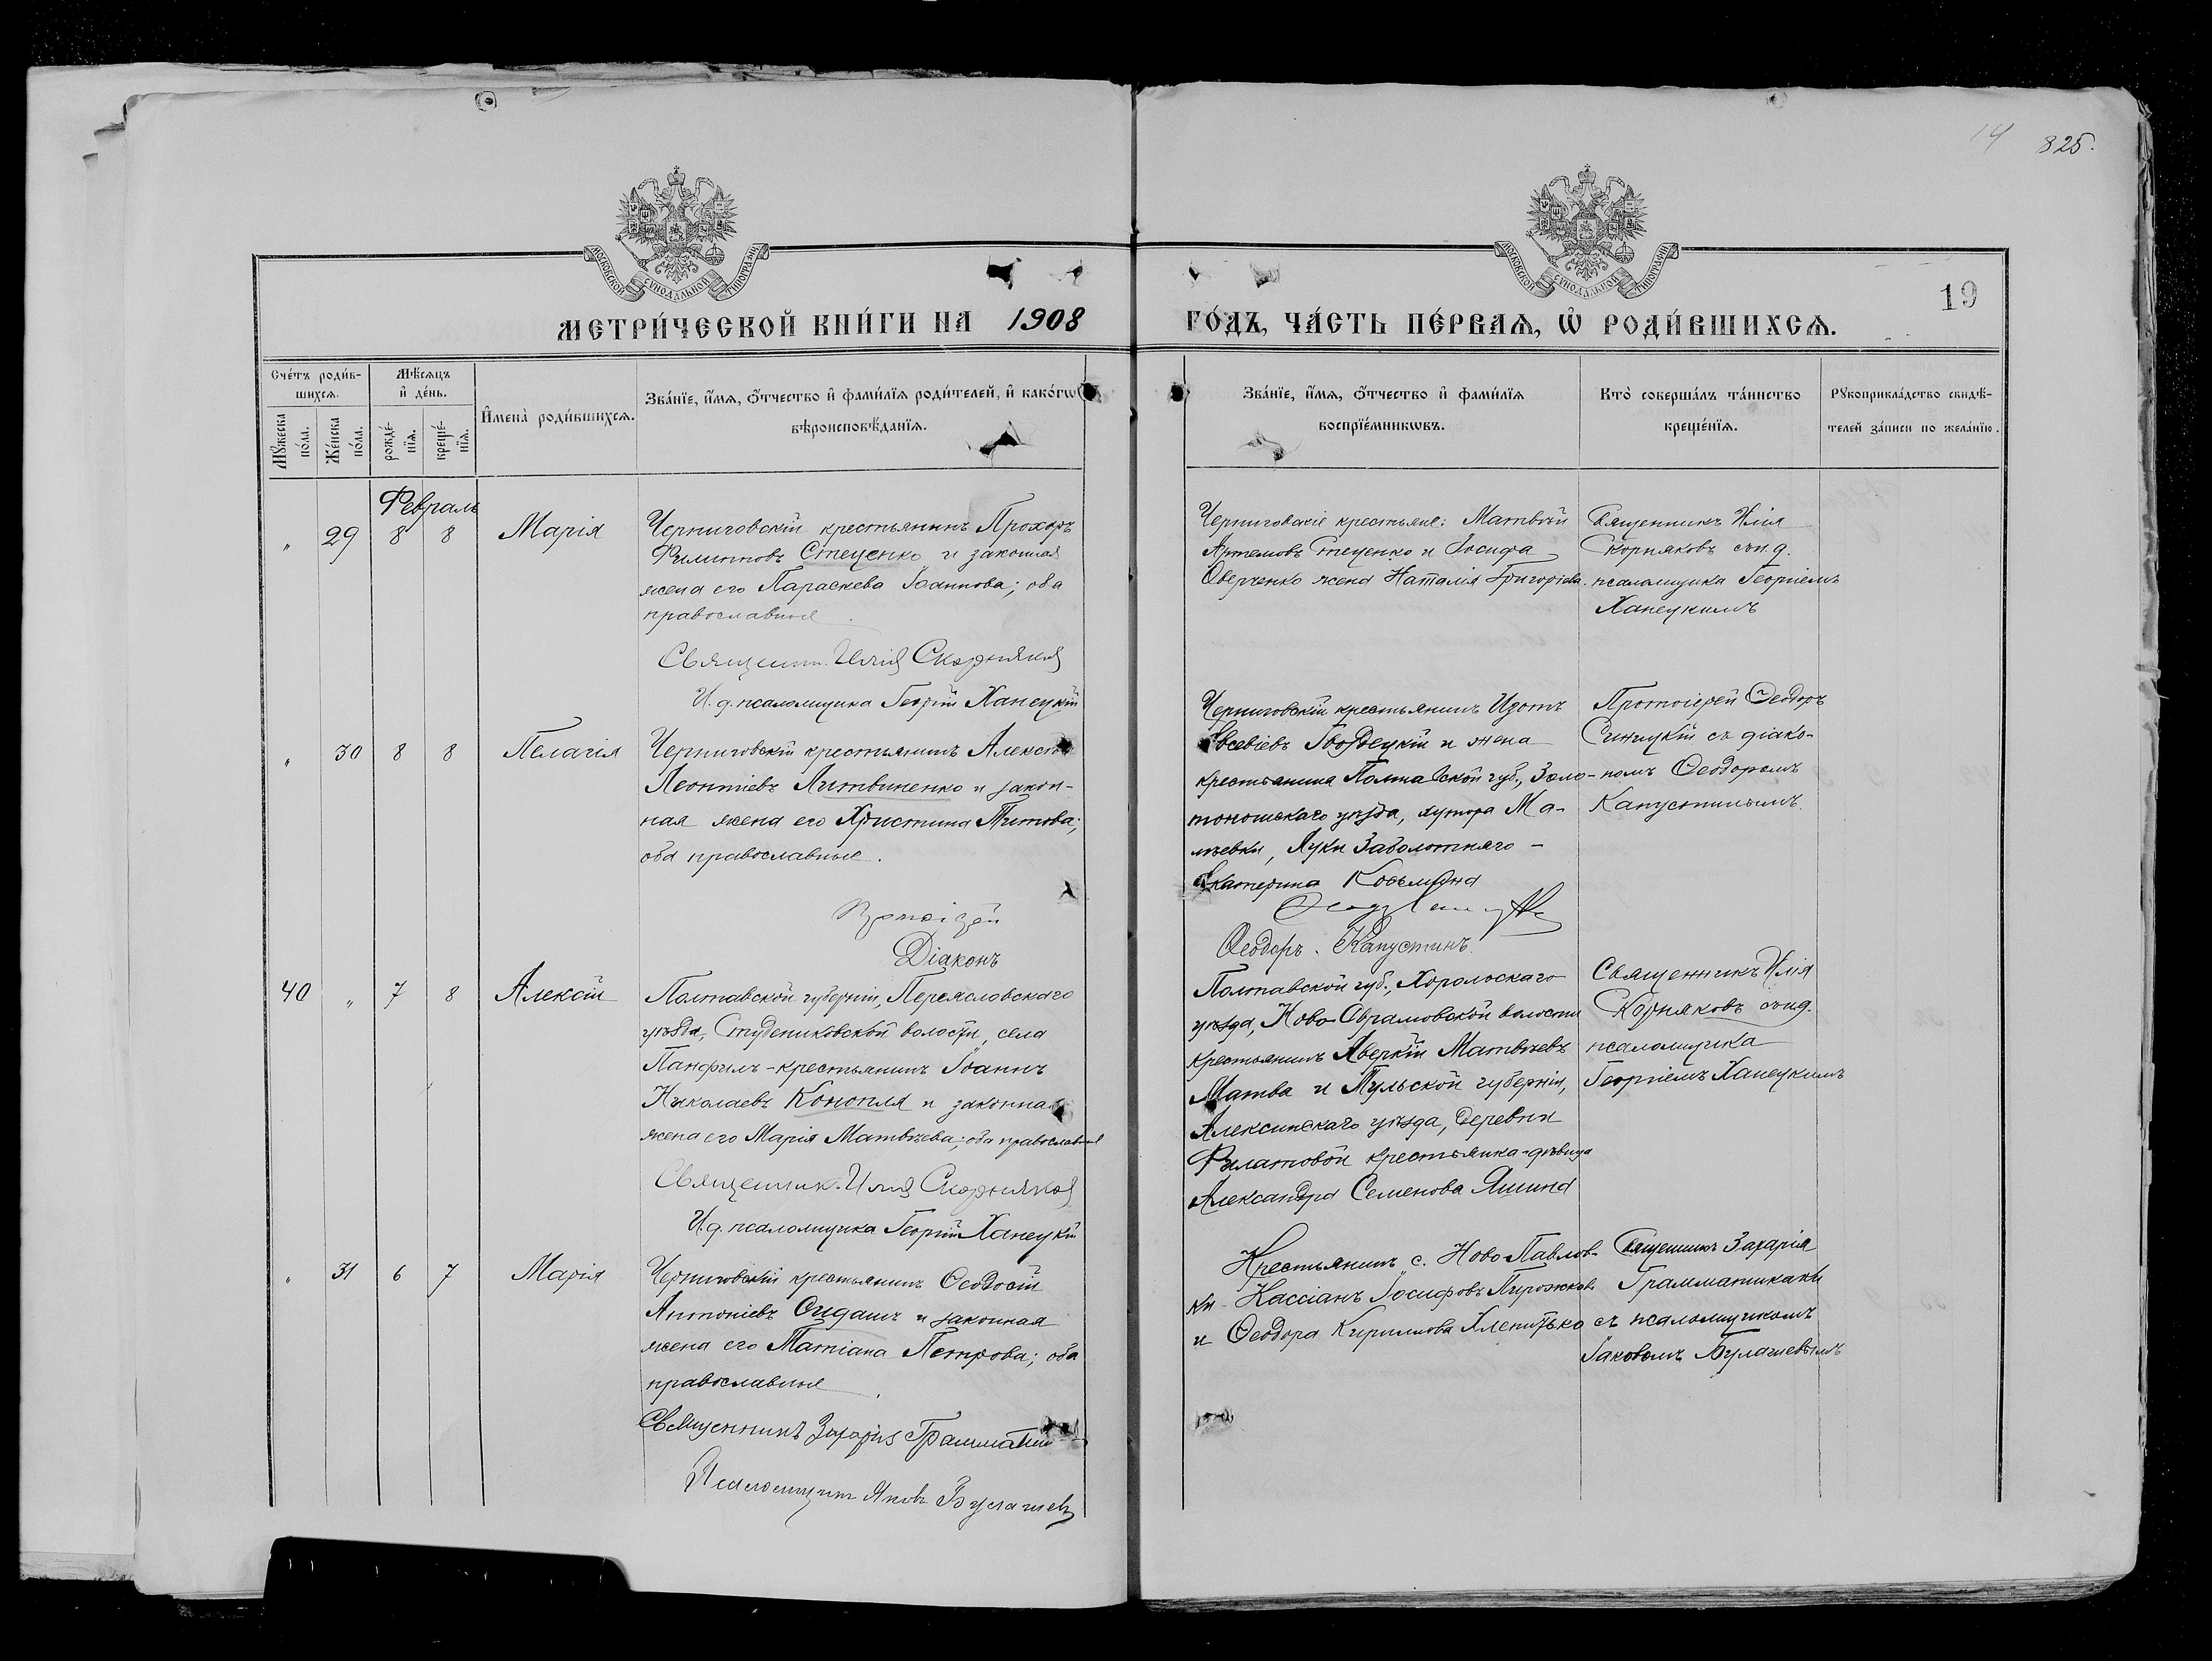 14 825.
19
МОСКОВСКОЙ СУНОДАЛЬНОЙ ТИПОГРАФІИ
МОСКОВСКОЙ СУНОДАЛЬНОЙ ТИПОГРАФІИ
МЕТРИ́ЧЕСКОЙ КНИ́ГИ НА 1908 ГО́ДЪ, ЧА́СТЬ ПЕ́РВАѦ, Ѡ҆ РОДИ́ВШИХСѦ.
Сче́тъ роди́в-
шихсѧ.
Мꙋ́жеска
по́ла.
Же́нска
по́ла.
Мѣ́сѧцъ
и҆ де́нь.
рожде́-
нїѧ.
креще́-
нїѧ.
И҆мена̀ роди́вшихсѧ.
Зва́нїе, и҆́мѧ, ѻ҆́тчество и҆ фами́лїѧ роди́телей, и҆ како́гѡ
вѣроисповѣ́данїѧ.
Зва́нїе, и҆́мѧ, ѻ҆́тчество и҆ фами́лїѧ
воспрїе́мникѡвъ.
Кто̀ соверша́лъ та́инство
креще́нїѧ.
Рꙋкоприкла́дство свидѣ́-
телей за́писи по жела́нїю.
Февраль
„ 29 8 8 Марія
Черниговскій крестьянинъ Прохоръ
Филипповъ Стеценко и законная
жена его Параскева Іоаннова; оба
православные
Священн. Илія Скорняковъ
И. д. псаломщика Георгій Ханецкій
Черниговскіе крестьяне: Матвѣй
Артемовъ Стеценко и Іосифа
Оверченко жена Наталія Григоріева.
Священникъ Илія
Скорняковъ съ и. д.
псаломщика Георгіемъ
Ханецкимъ
„ 30 8 8 Пелагія
Черниговскій крестьянинъ Алексѣй
Леонтіевъ Литвиненко и закон-
ная жена его Христина Титова;
оба православные.
Протоіерей
Діаконъ
Черниговскій крестьянинъ Изотъ
Евсевіевъ Гвоздецкій и жена
крестьянина Полтавской губ., Золо-
тоношскаго уѣзда, хутора Ма-
лѣевки, Луки Заболотняго -
Екатерина Косьмина
Ѳеодоръ Капустинъ.
Протоіерей Ѳеодоръ
Синицкій съ діако-
номъ Ѳеодоромъ
Капустинымъ.
40 „ 7 8 Алексій
Полтавской губерніи, Переясловскаго
уѣзда, Студениковской волости, села
Панфилъ - крестьянинъ Іоаннъ
Николаевъ Конопля и законная
жена его Марія Матвѣева; оба православные
Священник. Илія Скорняковъ
И. д. псаломщика Георгій Ханецкій
Полтавской губ., Хорольскаго
уѣзда, Ново-Аврамовской волости
крестьянинъ Аверкій Матвѣевъ
Матва и Тульской губерніи,
Алексинскаго уѣзда, деревни
Филатовой крестьянка-дѣвица
Александра Семенова Яшина
Священникъ Илія
Скорняковъ съ и. д.
псаломщика
Георгіемъ Ханецкимъ
„ 31 6 7 Марія
Черниговскій крестьянинъ Ѳеодосій
Антоніевъ Сидашъ и законная
жена его Татіана Петрова; оба
православные
Священникъ Захарія Грамматикаки
Псаломщикъ Яковъ Булашевъ
Крестьянинъ с. Ново-Павлов-
ки - Кассіанъ Іосифовъ Пирожковъ
и Ѳеодора Кириллова Хлепитько
Священникъ Захарія
Грамматикаки
съ псаломщикомъ
Іаковомъ Булашевымъ